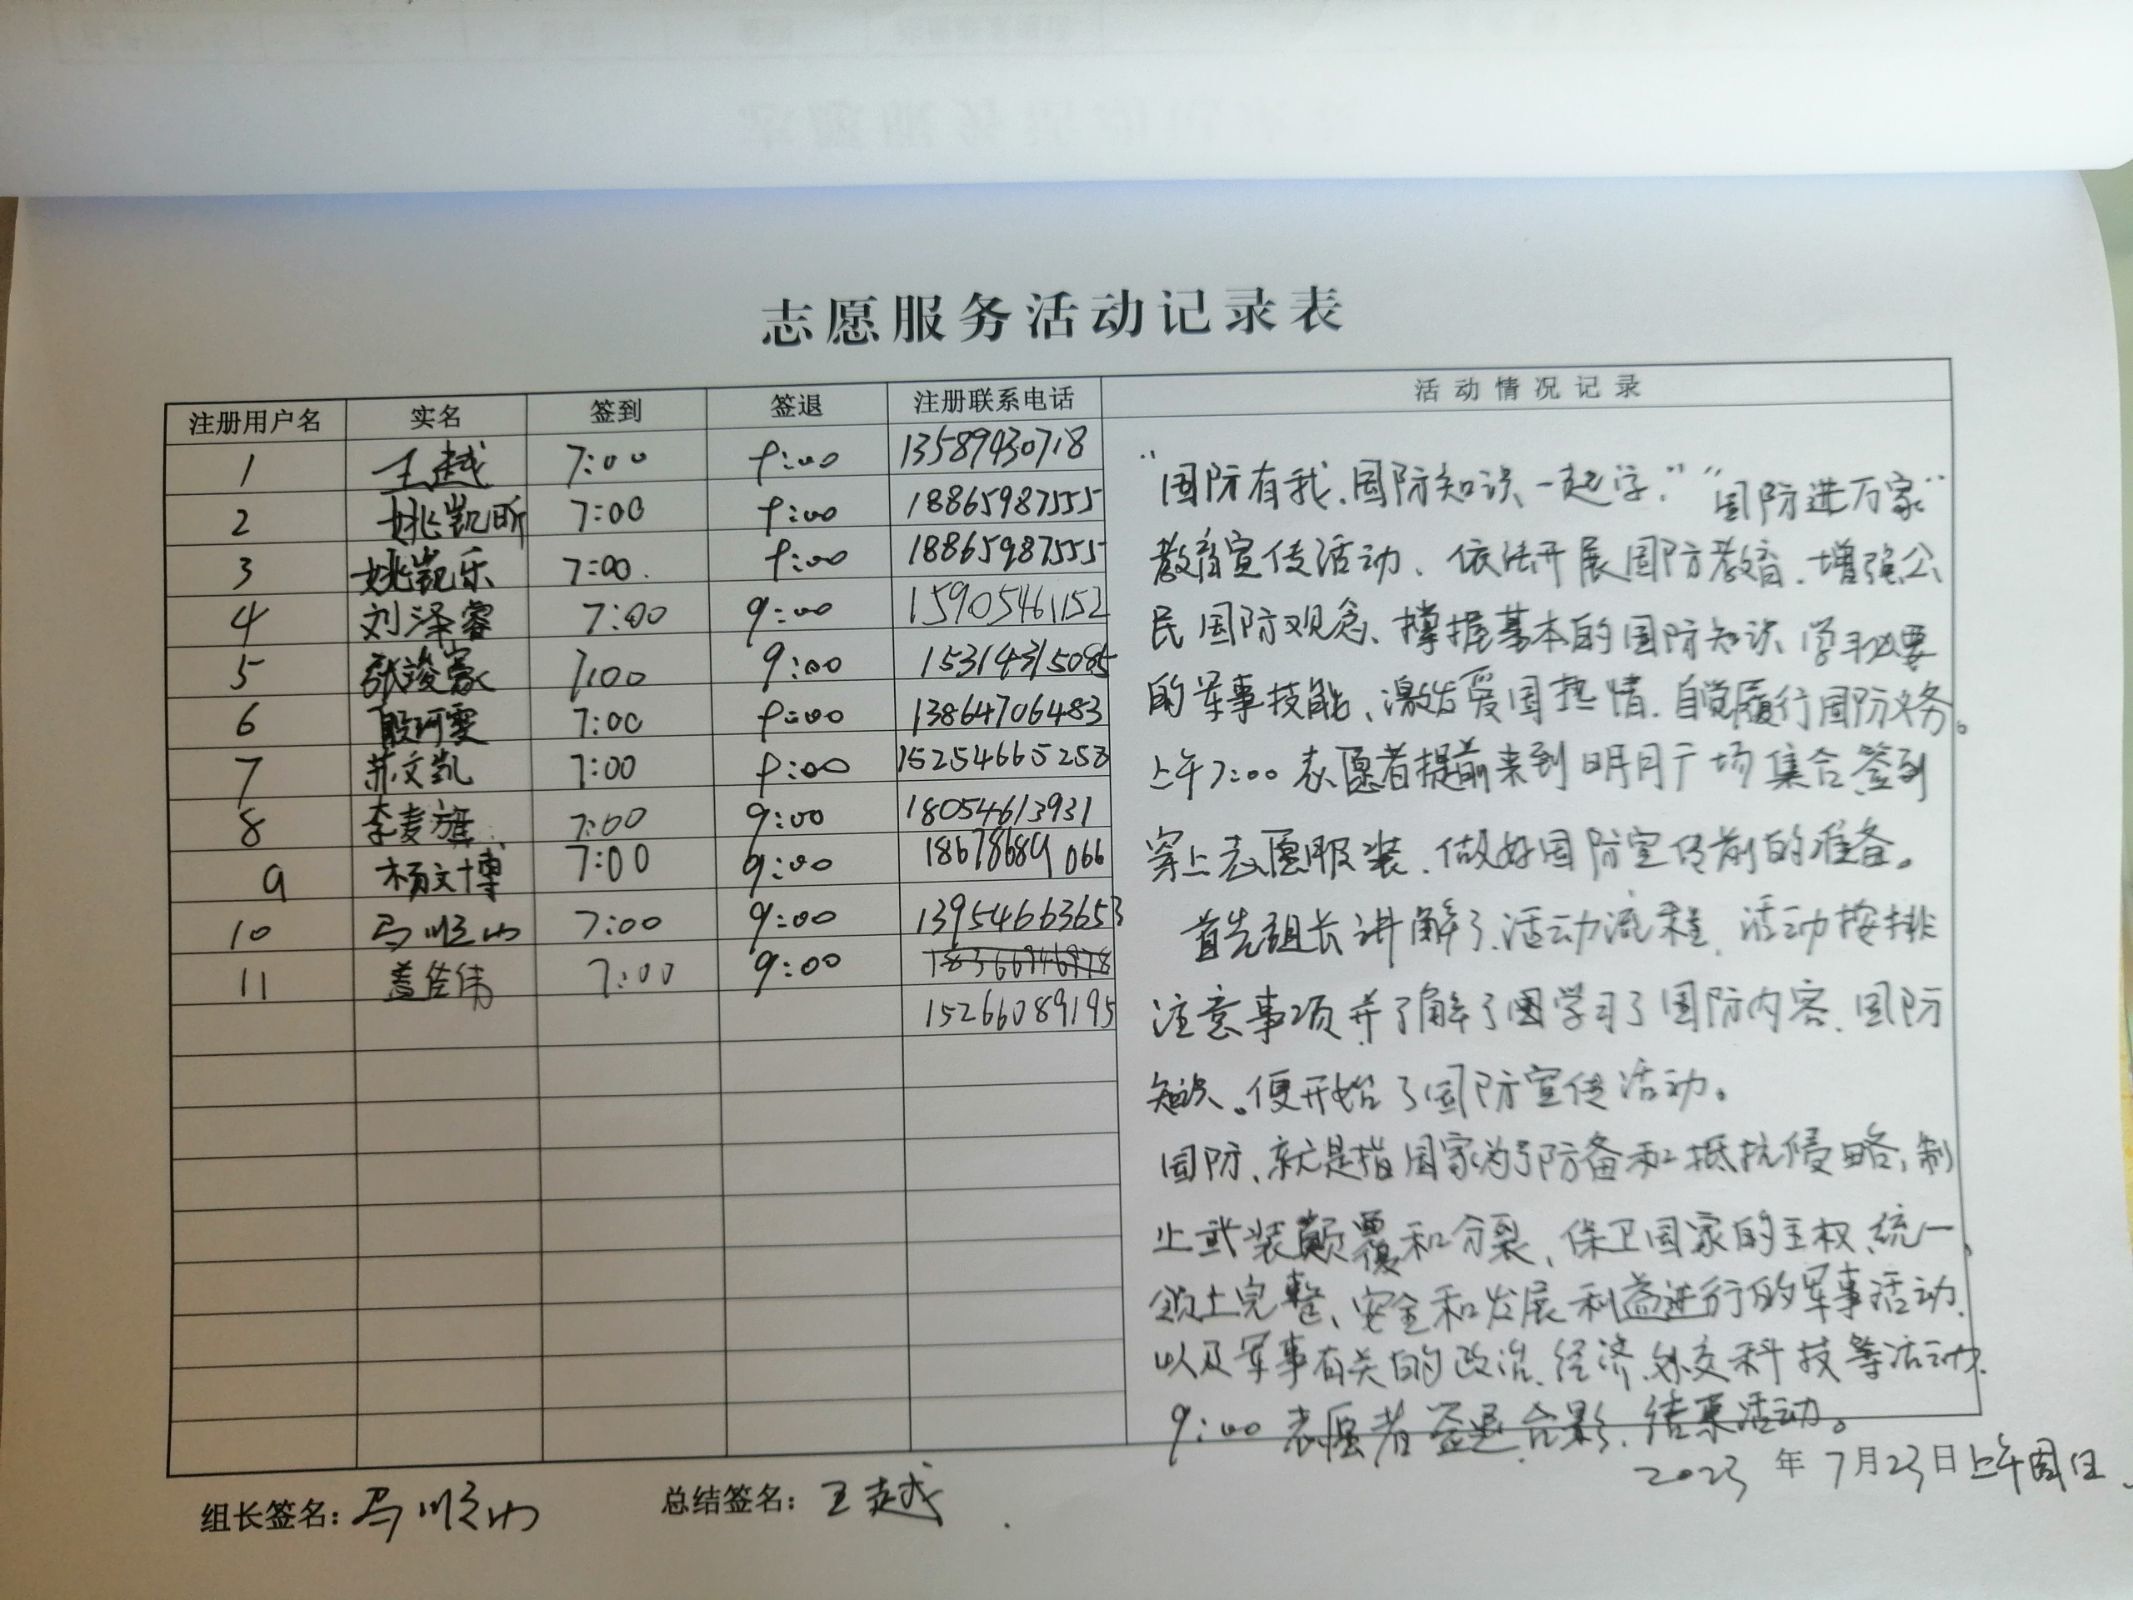 志愿服务活动记录表
注册用户名 实名 签到 签退 注册联系电话 活动情况记录
1 王越 7:00 9:00 13589430718
2 姚凯昕 7:00 9:00 18865987555
3 姚凯乐 7:00. 9:00 18865987555
4 刘泽睿 7:00 9:00 15905461152
5 张竣豪 7:00 9:00 15314315085
6 殷珂雯 7:00 9:00 13864706483
7 苏文凯 7:00 9:00 15254665253
8 李麦旗 7:00 9:00 18054613931
9 杨文博 7:00 9:00 18678684066
10 马顺山 7:00 9:00 13954663653
11 盖佳伟 7:00 9:00
15266089195
“国防有我、国防知识一起学.”“国防进万家”
教育宣传活动、依法开展国防教育、增强公
民国防观念、撑握基本的国防知识、学习必要
的军事技能、激发爱国热情、自觉履行国防义务。
上午7:00 志愿者提前来到明月广场集合签到
穿上志愿服装、做好国防宣传前的准备。
首先组长讲解了活动流程、活动按排
注意事项并了解了学习了国防内容、国防
知识。便开始了国防宣传活动。
国防、就是指国家为了防备和抵抗侵略、制
止武装颠覆和分裂、保卫国家的主权、统一、
领土完整、安全和发展利益进行的军事活动、
以及军事有关的政治、经济、外交科技等活动.
9:00 志愿者签退、合影、结束活动。
2023 年 7月23日 上午周日
组长签名：马顺山 总结签名：王越